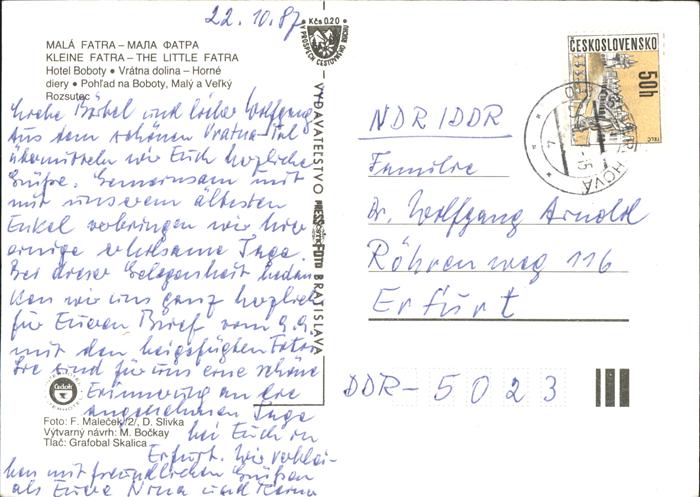 22.10.87
Kčs 0.20
V PROSPĚCH CESTOVNÉHO RUCHU
MALÁ FATRA – МАЛА ФАТРА
KLEINE FATRA – THE LITTLE FATRA
Hotel Boboty • Vrátna dolina – Horné
diery • Pohľad na Boboty, Malý a Veľký
Rozsutec
Liebe Bärbel und lieber Wolfgang
Aus dem schönen Vratna-Tal
übermitteln wir Euch herzliche
Grüße. Gemeinsam mit
mit unserem ältesten
Enkel verbringen wir hier
einige erholsame Tage.
Bei dieser Gelegenheit bedan-
ken wir uns ganz herzlich
für Eueren Brief vom 9.9.
mit den beigefügten Fotos.
Sie sind für uns eine schöne
Erinnerung an die
angenehmen Tage
bei Euch in
Erfurt. Wir verblei-
ben mit freundlichen Grüßen
als Euere Nina und
Čedok
Foto: F. Maleček/2/, D. Slivka
Výtvarný návrh: M. Bočkay
Tlač: Grafobal Skalica
VYDAVATEĽSTVO PRESSFOTO BRATISLAVA
ČESKOSLOVENSKO
50h
TELČ
NDR/DDR
Familie
Dr. Wolfgang Arnold
Röhrenweg 116
Erfurt
DDR-5023